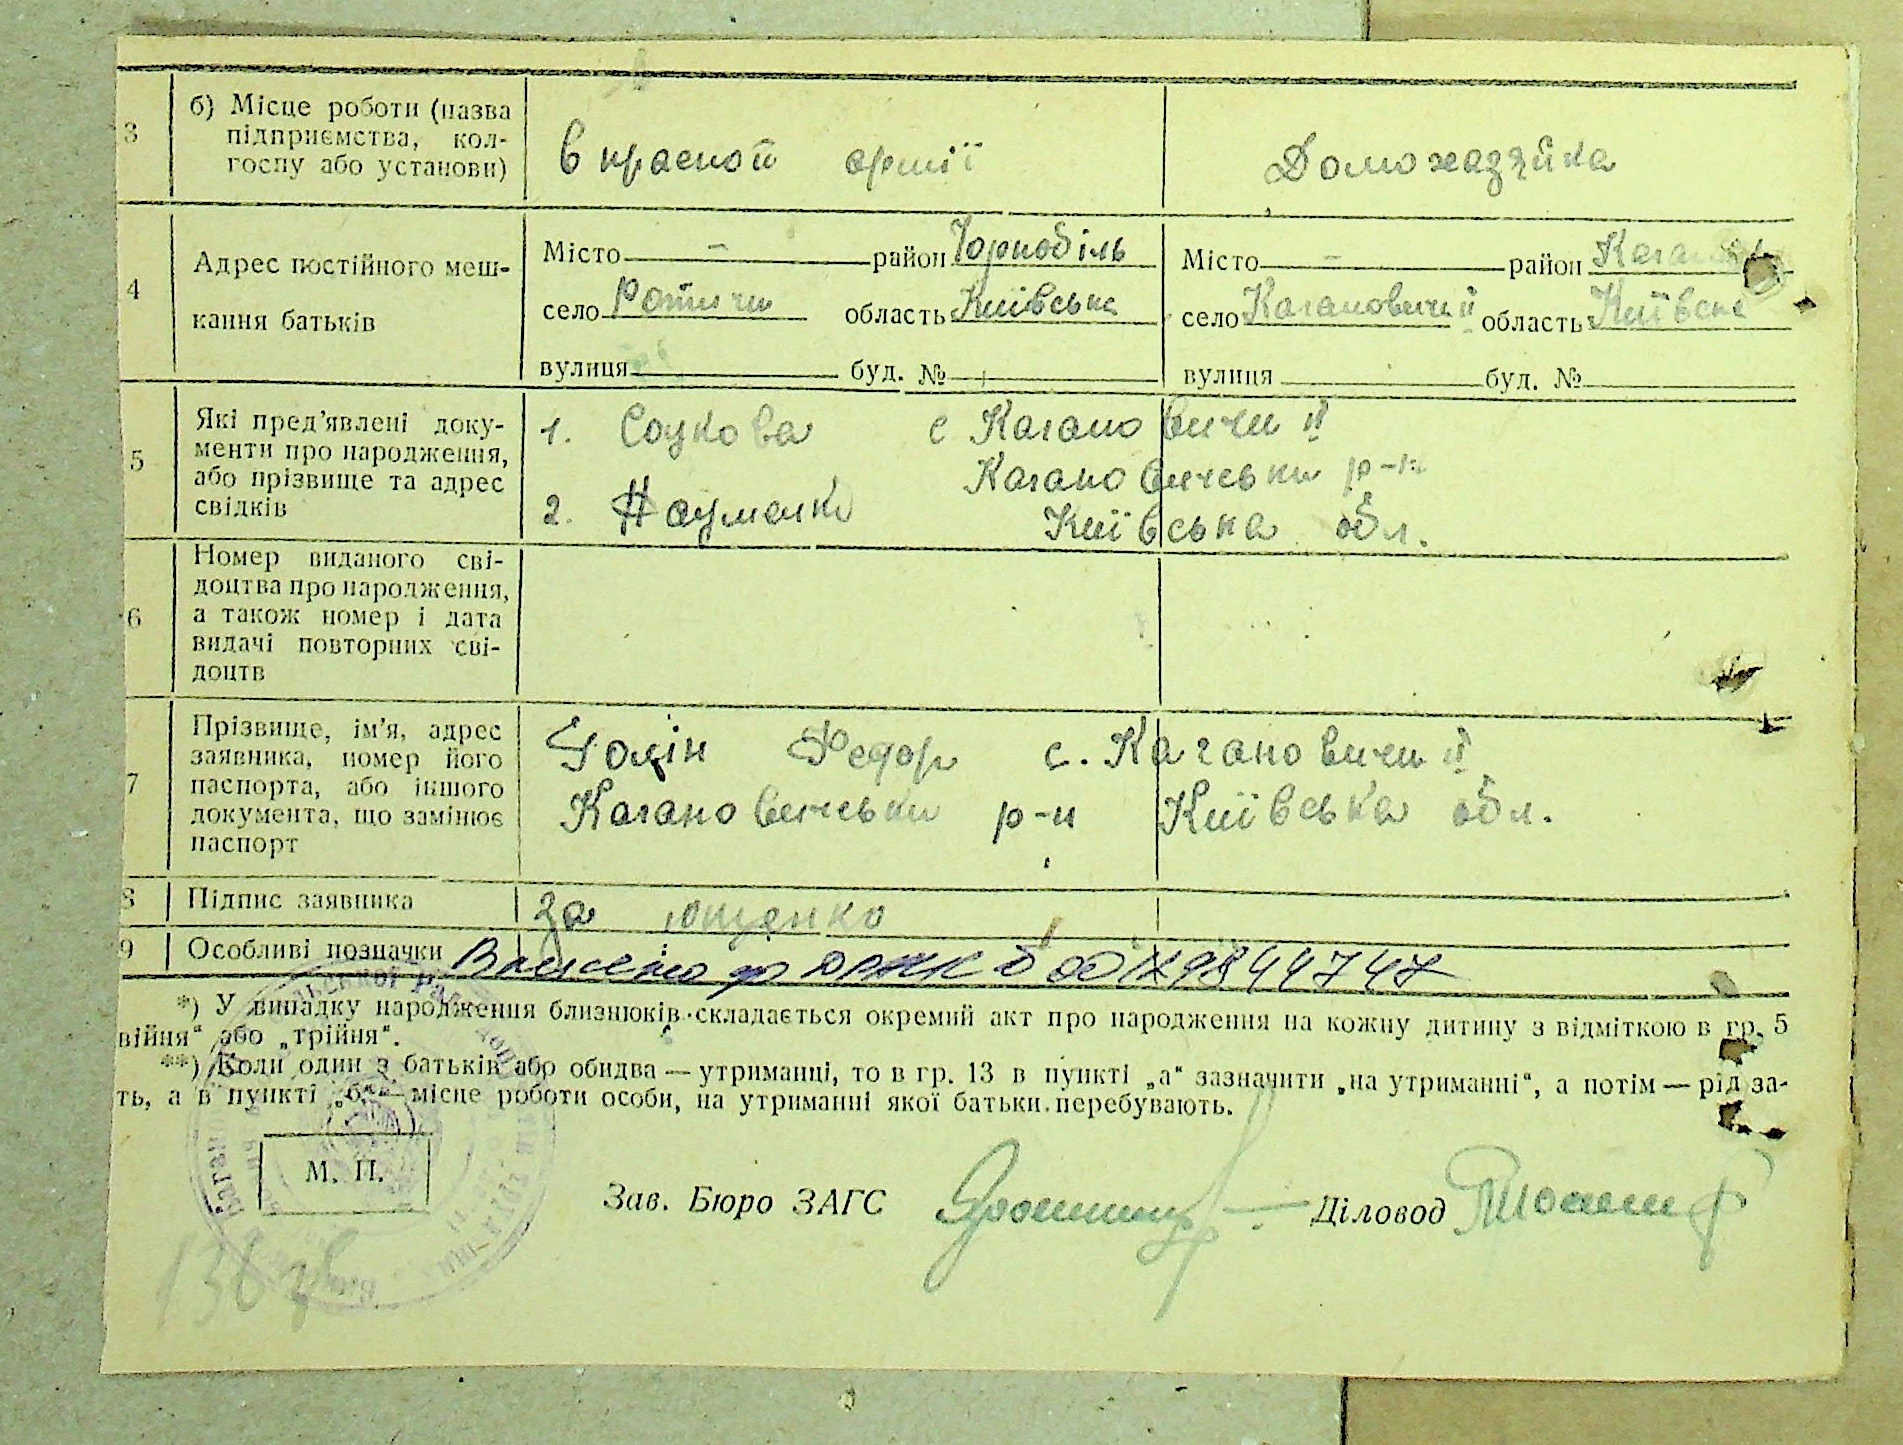 3 б) Місце роботи (назва підприємства, кол-
госпу або установи) в красной армії Домохазяйка
4 Адрес постійного меш-
кання батьків
Місто — район Чорнобіль Місто — район
село Ротичи область Київська село Кагановичи II область Київська
вулиця буд. № вулиця буд. №
5 Які пред'явлені доку-
менти про народження,
або прізвище та адрес
свідків
1. с Кагановичи II
Кагановичськи р-н
2. Науменко Київська обл.
6 Номер виданого сві-
доцтва про народження,
а також номер і дата
видачі повторних сві-
доцтв
7 Прізвище, ім'я, адрес
заявника, номер його
паспорта, або іншого
документа, що замінює
паспорт
Федор с. Кагановичи II
Кагановичськи р-н Київська обл.
8 Підпис заявника за Ющенко
9 Особливі позначки
*) У випадку народження близнюків складається окремий акт про народження на кожну дитину з відміткою в гр. 5
війня“ або „трійня“.
**) Коли один з батьків або обидва — утриманці, то в гр. 13 в пункті „а“ зазначити „на утриманні“, а потім — рід за-
ть, а в пункті „б“ — місце роботи особи, на утриманні якої батьки перебувають.
М. П.
Зав. Бюро ЗАГС Діловод